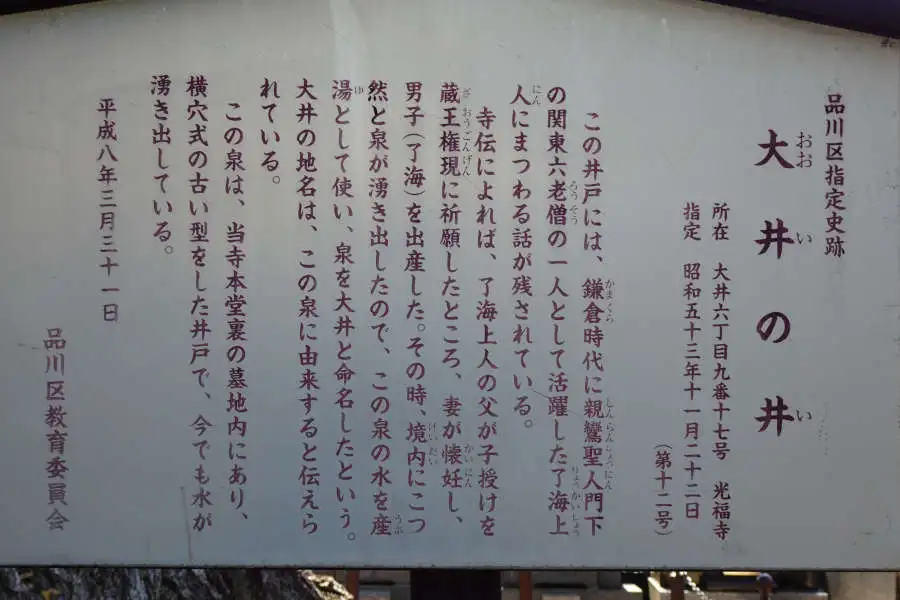 品川区指定史跡
大井の井
所在 大井六丁目九番十七号 光福寺
指定 昭和五十三年十一月二十二日
（第十二号）
この井戸には、鎌倉時代に親鸞聖人門下
の関東六老僧の一人として活躍した了海上
人にまつわる話が残されている。
寺伝によれば、了海上人の父が子授けを
蔵王権現に祈願したところ、妻が懐妊し、
男子（了海）を出産した。その時、境内にこつ
然と泉が湧き出したので、この泉の水を産
湯として使い、泉を大井と命名したという。
大井の地名は、この泉に由来すると伝えら
れている。
この泉は、当寺本堂裏の墓地内にあり、
横穴式の古い型をした井戸で、今でも水が
湧き出している。
平成八年三月三十一日
品川区教育委員会